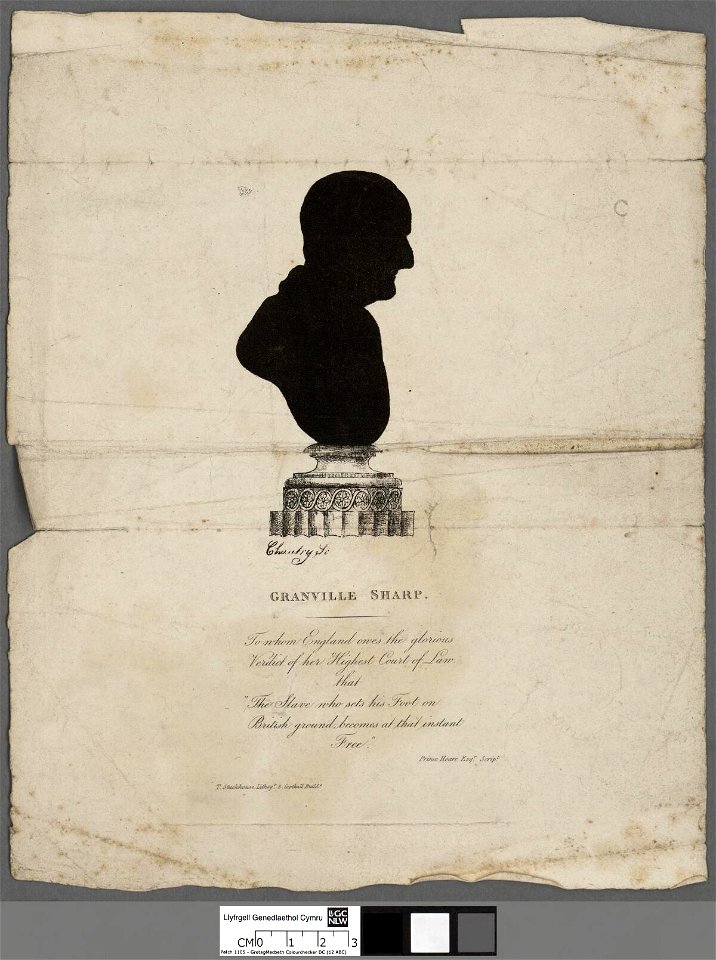 C
Chantry, Sc
GRANVILLE SHARP.
To whom England owes the glorious
Verdict of her Highest Court of Law
that
"The Slave who sets his Foot on
British ground, becomes at that instant
Free".
Prince Hoare Esqr. Script.
T. Stackhouse, Lithogr.
Llyfrgell Genedlaethol Cymru
LlGC
NLW
CM 0 1 2 3
Patch 1105 - GretagMacbeth Colourchecker DC (12 ABC)